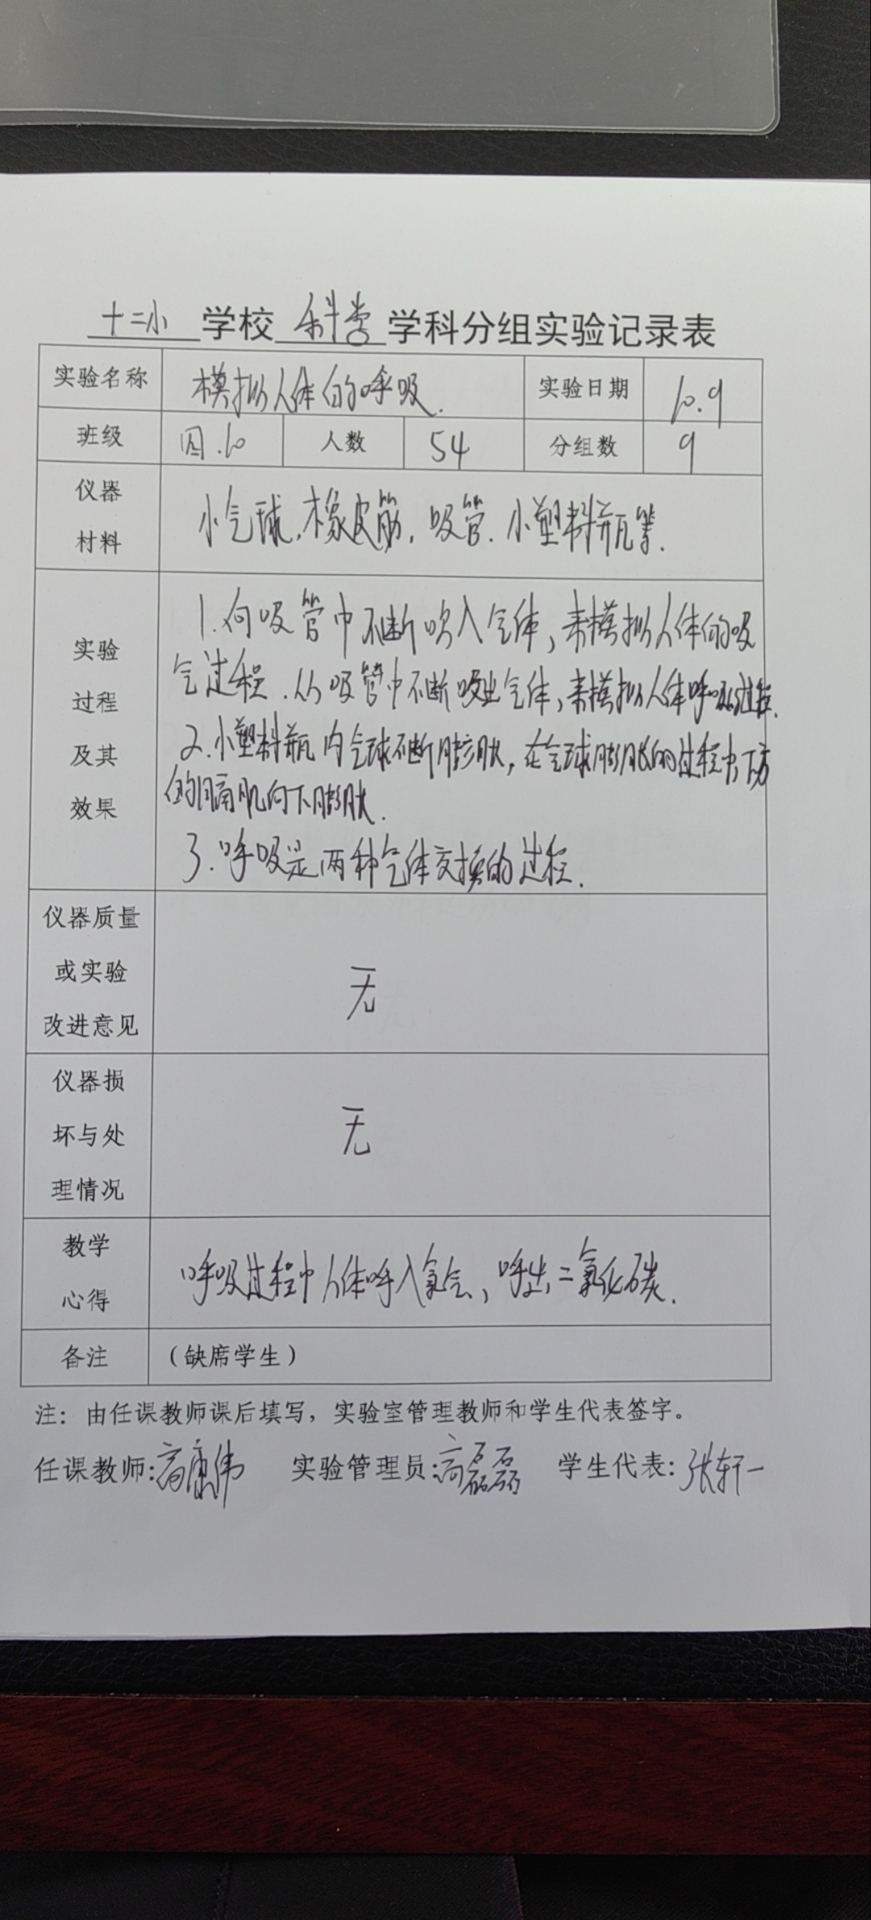 十二小 学校 科学 学科分组实验记录表
实验名称 模拟人体的呼吸. 实验日期 10.9
班级 四.10 人数 54 分组数 9
仪器
材料
小气球,橡皮筋,吸管.小塑料瓶等.
实验
过程
及其
效果
1.向吸管中不断吹入气体,来模拟人体的吸
气过程.从吸管中不断吸出气体,来模拟人体呼吸的过程.
2.小塑料瓶内气球不断膨胀,在气球膨胀的过程中,下方
的膈肌向下膨胀.
3.呼吸是两种气体交换的过程.
仪器质量
或实验
改进意见
无
仪器损
坏与处
理情况
无
教学
心得
呼吸过程中人体呼入氧气,呼出二氧化碳.
备注 (缺席学生)
注：由任课教师课后填写，实验室管理教师和学生代表签字。
任课教师:高康伟 实验管理员:高磊磊 学生代表:张轩一